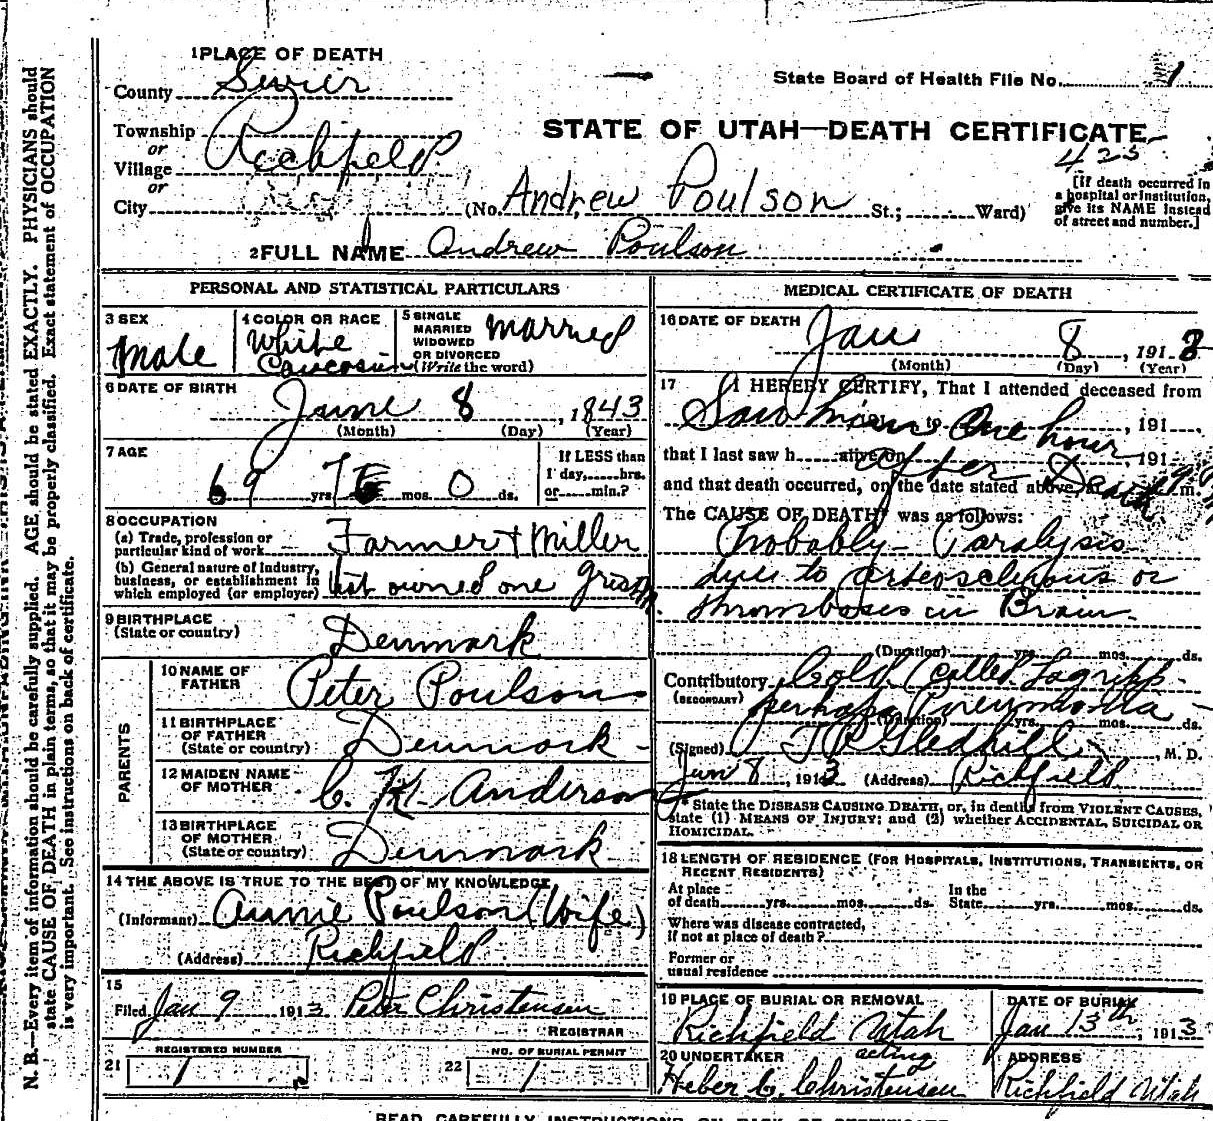 1 PLACE OF DEATH
County Sevier
State Board of Health File No. 1
Township or Village or City Richfield
STATE OF UTAH—DEATH CERTIFICATE
425
[If death occurred in a hospital or institution, give its NAME instead of street and number.]
(No. Andrew Poulson St.; Ward)
2 FULL NAME Andrew Poulson
PERSONAL AND STATISTICAL PARTICULARS
3 SEX
Male
4 COLOR OR RACE
White
5 SINGLE MARRIED WIDOWED OR DIVORCED (Write the word)
Married
6 DATE OF BIRTH
June 8, 1843
(Month) (Day) (Year)
7 AGE
69 yrs. 7 mos. 0 ds.
If LESS than 1 day, hrs. or min.?
8 OCCUPATION
(a) Trade, profession or particular kind of work Farmer + Miller
(b) General nature of industry, business, or establishment in which employed (or employer) owned one
9 BIRTHPLACE
(State or country) Denmark
PARENTS
10 NAME OF FATHER Peter Poulson
11 BIRTHPLACE OF FATHER (State or country) Denmark
12 MAIDEN NAME OF MOTHER C. K. Anderson
13 BIRTHPLACE OF MOTHER (State or country) Denmark
14 THE ABOVE IS TRUE TO THE BEST OF MY KNOWLEDGE
(Informant) Annie Poulson (Wife)
(Address) Richfield
15
Filed Jan 9 1913 Peter Christensen
REGISTRAR
21 REGISTERED NUMBER 1
22 NO. OF BURIAL PERMIT 1
MEDICAL CERTIFICATE OF DEATH
16 DATE OF DEATH
Jan 8, 1913
(Month) (Day) (Year)
17 I HEREBY CERTIFY, That I attended deceased from
Saw him One hour, 191
that I last saw h alive on after, 191
and that death occurred, on the date stated above, at Death m.
The CAUSE OF DEATH* was as follows:
Probably Paralysis
due to arteosclerous or
thromboses in Brain
(Duration) yrs. mos. ds.
Contributory Cold (called Lagripp
(SECONDARY) perhaps Pneumonia
(Duration) yrs. mos. ds.
(Signed) Gledhill, M. D.
Jan 8, 1913 (Address) Richfield
* State the DISEASE CAUSING DEATH, or, in deaths from VIOLENT CAUSES, state (1) MEANS OF INJURY; and (2) whether ACCIDENTAL, SUICIDAL OR HOMICIDAL.
18 LENGTH OF RESIDENCE (FOR HOSPITALS, INSTITUTIONS, TRANSIENTS, OR RECENT RESIDENTS)
At place of death yrs. mos. ds. In the State yrs. mos. ds.
Where was disease contracted, if not at place of death?
Former or usual residence
19 PLACE OF BURIAL OR REMOVAL
Richfield Utah
DATE OF BURIAL
Jan 13th, 1913
20 UNDERTAKER acting
Heber C. Christensen
ADDRESS
Richfield Utah
READ CAREFULLY INSTRUCTIONS ON BACK OF CERTIFICATE
N. B.—Every item of information should be carefully supplied. AGE should be stated EXACTLY. PHYSICIANS should
state CAUSE OF DEATH in plain terms, so that it may be properly classified. Exact statement of OCCUPATION
is very important. See instructions on back of certificate.